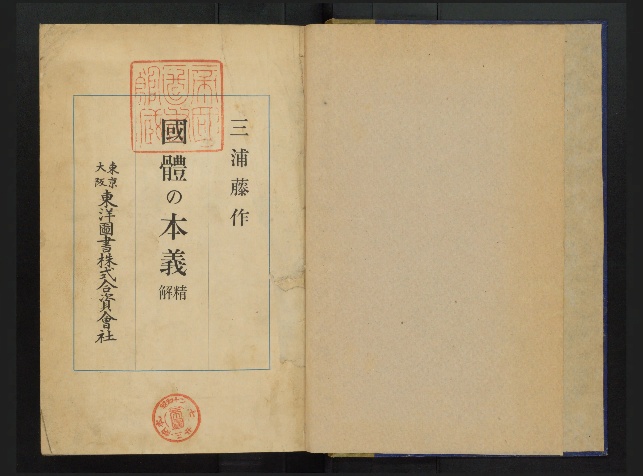 三浦藤作
國體の本義
精解
東京
大阪
東洋圖書株式合資會社